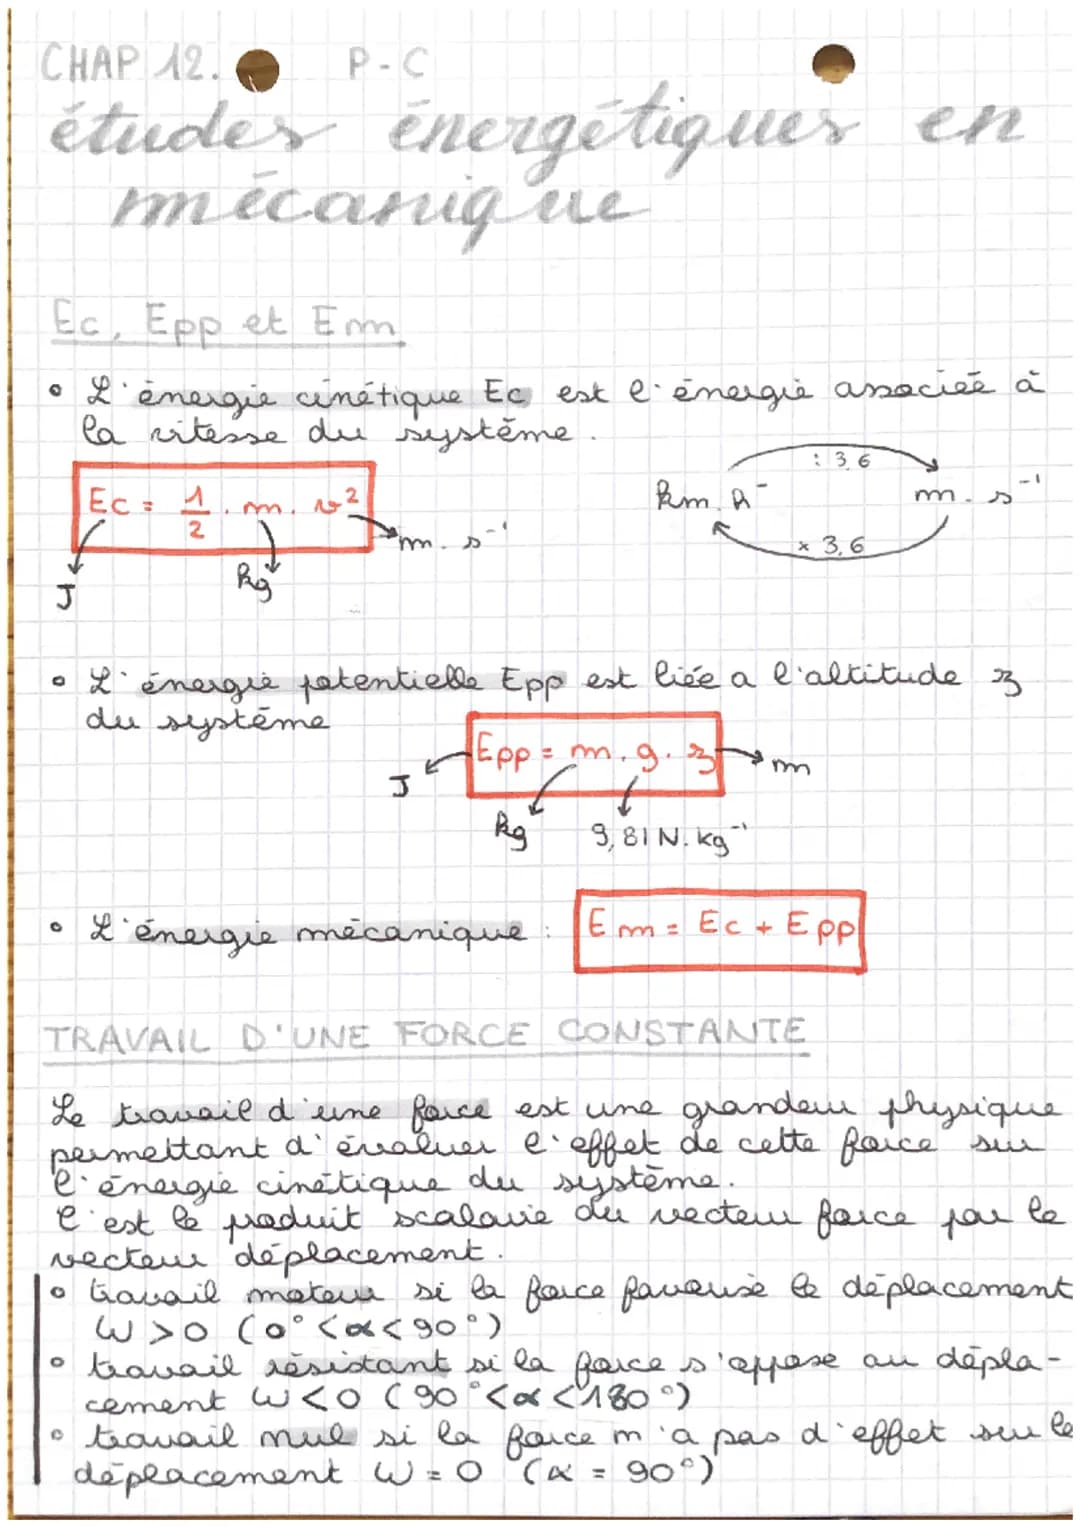 CHAP 12. P-C
études énergétiques en
mécanique
Ec, Epp et Em
• L'énergie cinétique Ec est l'énergie associée à
la vitesse du système.
: 3,6
Ec = 1/2 . m. v²
km. h⁻
m. s⁻¹
m. s⁻¹
× 3,6
J
kg
• L'énergie potentielle Epp est liée a l'altitude z
du système
Epp = m. g. z
J
m
kg
9,81 N. kg⁻¹
• L'énergie mécanique : Em = Ec + Epp
TRAVAIL D'UNE FORCE CONSTANTE
Le travail d'une force est une grandeur physique
permettant d'évaluer l'effet de cette force sur
l'énergie cinétique du système.
C'est le produit scalaire du vecteur force par le
vecteur déplacement.
• travail moteur si la force favorise le déplacement
W > 0 (0° < α < 90°)
• travail résistant si la force s'oppose au dépla-
cement W < 0 (90° < α < 180°)
• travail nul si la force n'a pas d'effet sur le
déplacement W = 0 (α = 90°)